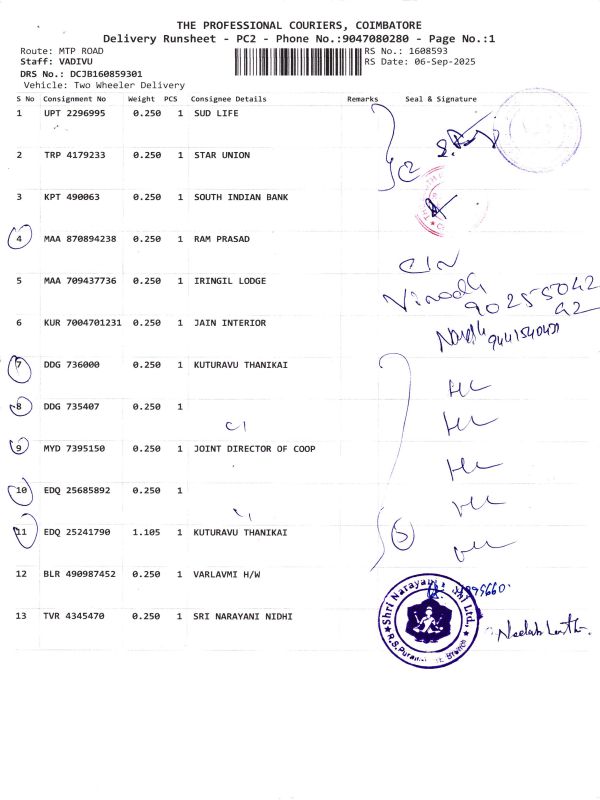 THE PROFESSIONAL COURIERS, COIMBATORE
Delivery Runsheet - PC2 - Phone No.:9047080280 - Page No.:1
Route: MTP ROAD RS No.: 1608593
Staff: VADIVU RS Date: 06-Sep-2025
DRS No.: DCJB160859301
Vehicle: Two Wheeler Delivery
S No Consignment No Weight PCS Consignee Details Remarks Seal & Signature
1 UPT 2296995 0.250 1 SUD LIFE
2 TRP 4179233 0.250 1 STAR UNION
3 KPT 490063 0.250 1 SOUTH INDIAN BANK
4 MAA 870894238 0.250 1 RAM PRASAD
5 MAA 709437736 0.250 1 IRINGIL LODGE
6 KUR 7004701231 0.250 1 JAIN INTERIOR
7 DDG 736000 0.250 1 KUTURAVU THANIKAI
8 DDG 735407 0.250 1
9 MYD 7395150 0.250 1 JOINT DIRECTOR OF COOP
10 EDQ 25685892 0.250 1
11 EDQ 25241790 1.105 1 KUTURAVU THANIKAI
5
12 BLR 490987452 0.250 1 VARLAVMI H/W
13 TVR 4345470 0.250 1 SRI NARAYANI NIDHI
Shri Narayani Ltd.,
Branch